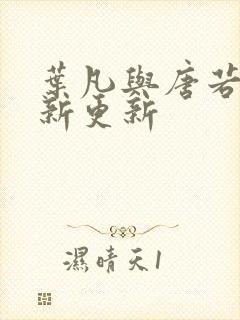 葉凡與唐若
新更新
濕晴天1